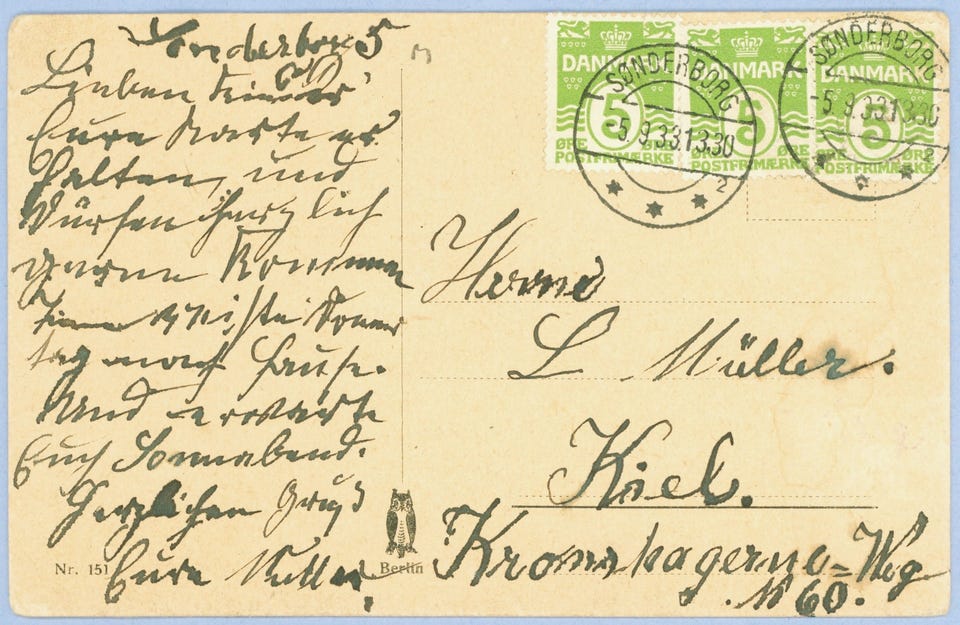 Sonderborg 5
Lieben Kinder
Eure Karte er
halten, und
Kommen
tag nach Hause.
Und erwarte
Euch Sonnabend.
Herzlichen Gruß
Eure Mutter
DANMARK
5
ØRE ØRE
POSTFRIMÆRKE
DANMARK
5
ØRE ØRE
POSTFRIMÆRKE
DANMARK
5
ØRE ØRE
POSTFRIMÆRKE
SØNDERBORG
-5.9.33.13.30
2
SØNDERBORG
-5.9.33.13.30
2
Herrne
L Müller.
Kiel.
Kronshagerne=Weg
N 60.
Nr. 151
Berlin